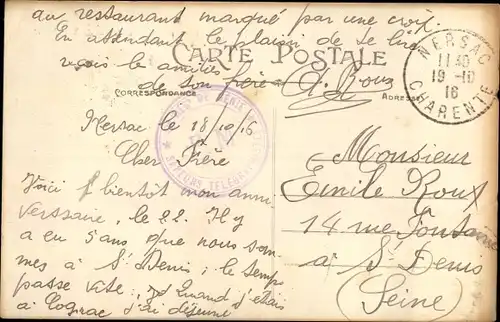 au restaurant marqué par une croix.
En attendant le plaisir de te lire
reçois les amitiés
de ton frère A. Roux
CARTE POSTALE
CORRESPONDANCE
ADRESSE
MERSAC
11 30
19 - 10
16
CHARENTE
Mersac le 18/10/16
Cher Frère
Voici bientôt mon anni
verssaire, le 22. Il y
a eu 5 ans que nous som-
mes à St Denis ; le temps
passe vite ; Quand j'étais
à Cognac j'ai déjeuné
Monsieur
Emile Roux
14 rue Fontaine
à St Denis
(Seine)